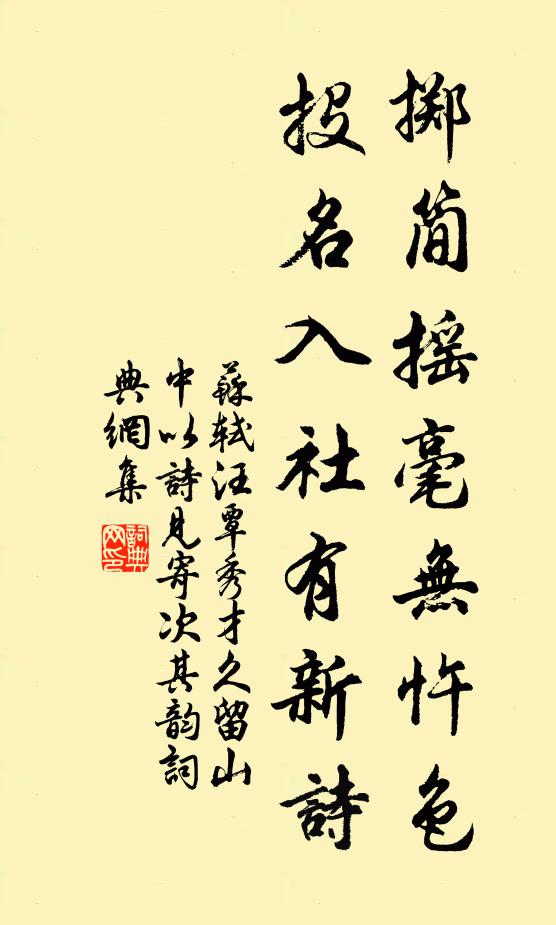 擲简摇毫無忤色
投名入社有新詩
蘇軾汪覃秀才久留山
中以詩見寄次其韵詞
典網集
詞典
网印